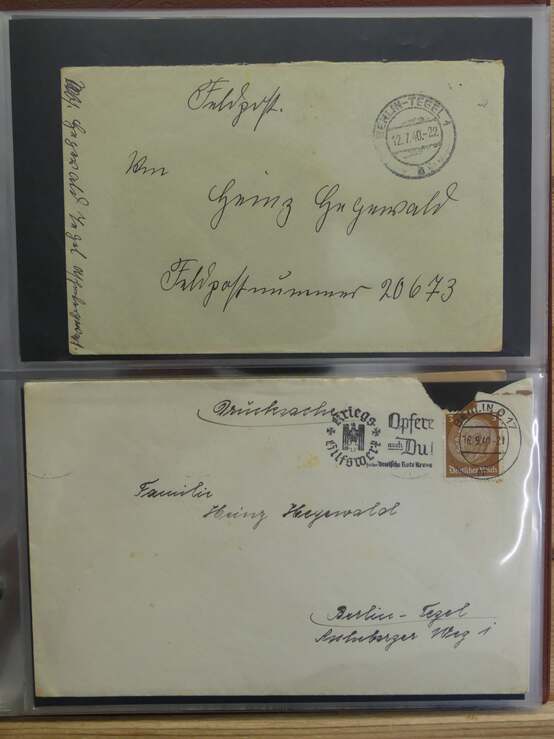 Feldpost.
BERLIN-TEGEL 1
12.7.40.-22
a
An
Heinz Hegewald
Feldpostnummer 20673
Hegewald Tegel
Drucksache
Kriegs
Hilfswerk
Opfere
auch Du!
Deutsche Rote Kreuz
BERLIN O 17
Deutsches Reich
Familie
Heinz Hegewald
Berlin-Tegel
Weg 1